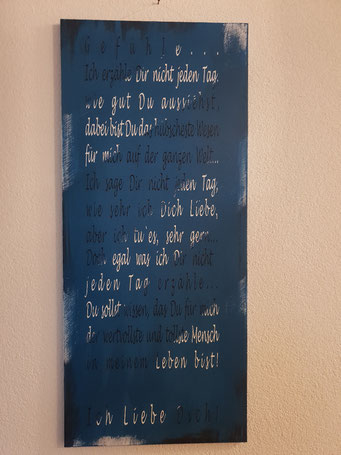 Gefühle...
Ich erzähle Dir nicht jeden Tag,
wie gut Du aussiehst,
dabei bist Du das hübscheste Wesen
für mich auf der ganzen Welt...
Ich sage Dir nicht jeden Tag,
wie sehr ich Dich Liebe,
aber ich tu'es, sehr gern...
Doch egal was ich Dir nicht
jeden Tag erzähle...
Du sollst wissen, das Du für mich
der wertvollste und tollste Mensch
in meinem Leben bist!
Ich Liebe Dich!